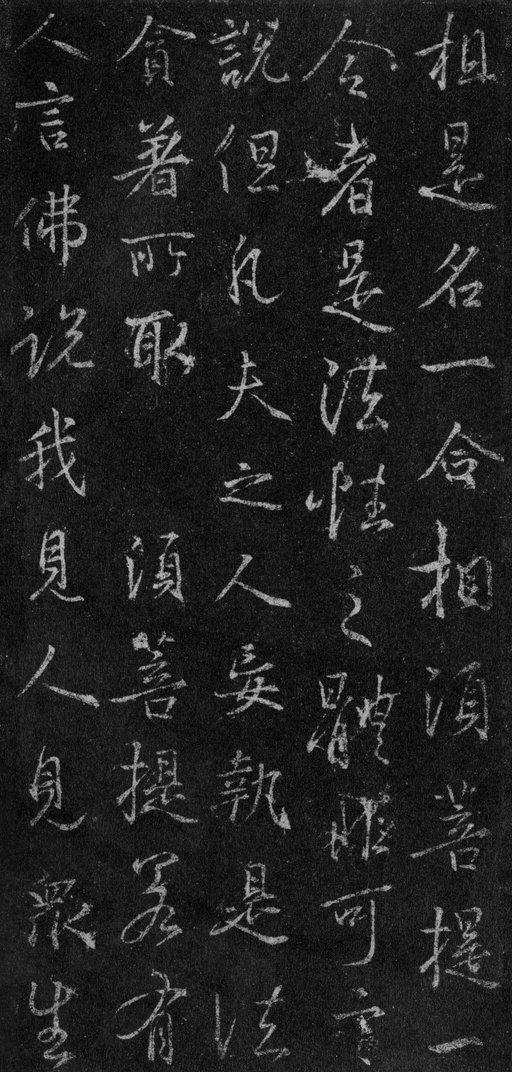 相是名一合相須菩提一
合者是法性之體雖可言
說但凡夫之人妄執是法
貪著所取　須菩提若有
人言佛說我見人見眾生